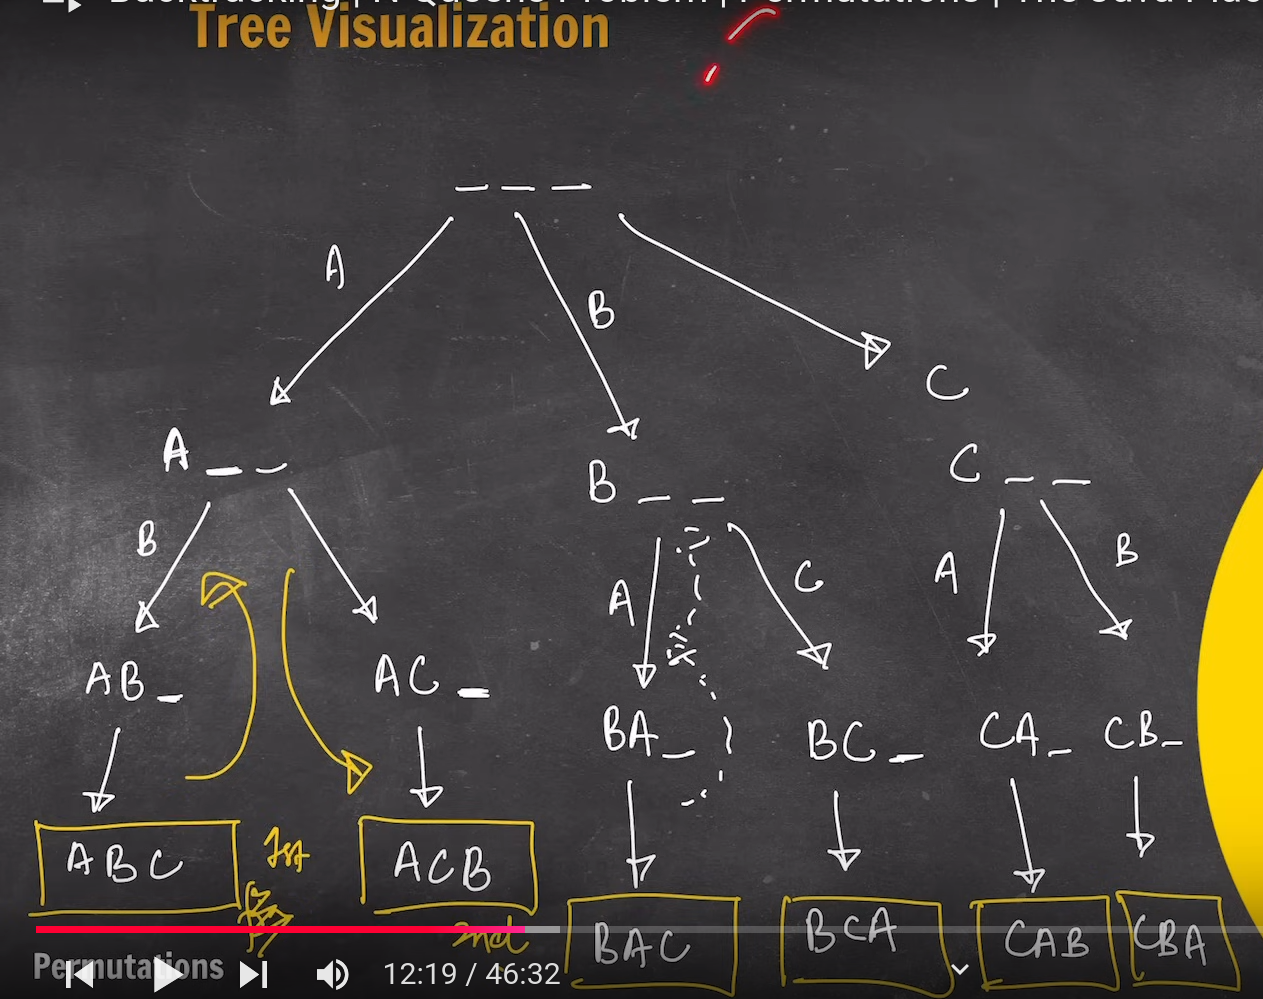 Backtracking | N-Queens Problem | Permutations | The Java Plac
Tree Visualization
_ _ _
A
B
C
A _ _
B _ _
C _ _
B
A
C
A
B
AB _
AC _
BA _
BC _
CA _
CB _
ABC
1st
ACB
2nd
BAC
BCA
CAB
CBA
Permutations
12:19 / 46:32